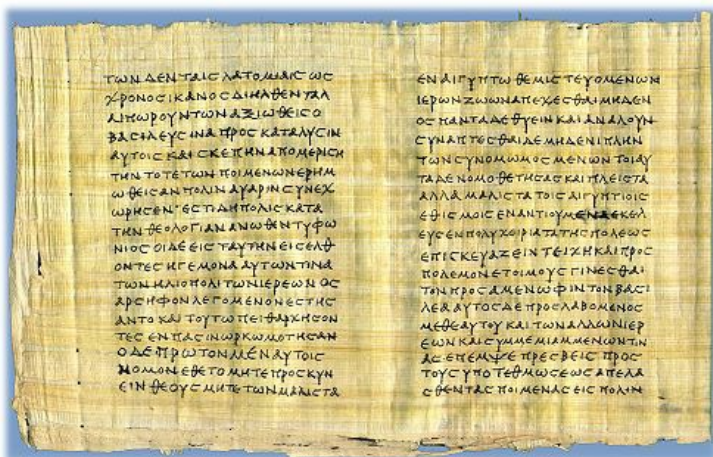 ΤΩΝ ΔΕΝ ΤΑΙϹ ΛΑΤΟΜΙΑΙϹ ΩϹ
ΧΡΟΝΟϹ ΙΚΑΝΟϹ ΔΙΗΛΘΕΝ ΤΑΛ
ΑΙΠΩΡΟΥΝΤΩΝ ΑΞΙΩΘΕΙϹ Ο
ΒΑϹΙΛΕΥϹ ΙΝΑ ΠΡΟϹ ΚΑΤΑΛΥϹΙΝ
ΑΥΤΟΙϹ ΚΑΙ ϹΚΕΠΗΝ ΑΠΟΜΕΡΙϹΗ
ΤΗΝ ΤΟΤΕ ΤΩΝ ΠΟΙΜΕΝΩΝ ΕΡΗΜ
ΩΘΕΙϹΑΝ ΠΟΛΙΝ ΑΥΑΡΙΝ ϹΥΝΕΧ
ΩΡΗϹΕΝ ΕϹΤΙ ΔΗ ΠΟΛΙϹ ΚΑΤΑ
ΤΗΝ ΘΕΟΛΟΓΙΑΝ ΑΝΩΘΕΝ ΤΥΦΩ
ΝΙΟϹ ΟΙ ΔΕ ΕΙϹ ΤΑΥΤΗΝ ΕΙϹΕΛΘ
ΟΝΤΕϹ ΗΓΕΜΟΝΑ ΑΥΤΩΝ ΤΙΝΑ
ΤΩΝ ΗΛΙΟΠΟΛΙΤΩΝ ΙΕΡΕΩΝ ΟϹ
ΑΡϹΗΦΟΝ ΛΕΓΟΜΕΝΟΝ ΕϹΤΗϹ
ΑΝΤΟ ΚΑΙ ΤΟΥΤΩ ΠΕΙΘΑΡΧΗϹΟΝ
ΤΕϹ ΕΝ ΠΑϹΙΝ ΩΡΚΩΜΟΤΗϹΑΝ
Ο ΔΕ ΠΡΩΤΟΝ ΜΕΝ ΑΥΤΟΙϹ
ΝΟΜΟΝ ΕΘΕΤΟ ΜΗΤΕ ΠΡΟϹΚΥΝ
ΕΙΝ ΘΕΟΥϹ ΜΗΤΕ ΤΩΝ ΜΑΛΙϹΤΑ
ΕΝ ΑΙΓΥΠΤΩ ΘΕΜΙϹΤΕΥΟΜΕΝΩΝ
ΙΕΡΩΝ ΖΩΩΝ ΑΠΕΧΕϹΘΑΙ ΜΗΔΕΝ
ΟϹ ΠΑΝΤΑ ΔΕ ΘΥΕΙΝ ΚΑΙ ΑΝΑΛΟΥΝ
ϹΥΝΑΠΤΕϹΘΑΙ ΔΕ ΜΗΔΕΝΙ ΠΛΗΝ
ΤΩΝ ϹΥΝΟΜΩΜΟϹΜΕΝΩΝ ΤΟΙΑΥ
ΤΑ ΔΕ ΝΟΜΟΘΕΤΗϹΑϹ ΚΑΙ ΠΛΕΙϹΤΑ
ΑΛΛΑ ΜΑΛΙϹΤΑ ΤΟΙϹ ΑΙΓΥΠΤΙΟΙϹ
ΕΘΙϹΜΟΙϹ ΕΝΑΝΤΙΟΥΜΕΝΑ ΕΚΕΛ
ΕΥϹΕΝ ΠΟΛΥΧΕΙΡΙΑ ΤΑ ΤΗϹ ΠΟΛΕΩϹ
ΕΠΙϹΚΕΥΑΖΕΙΝ ΤΕΙΧΗ ΚΑΙ ΠΡΟϹ
ΠΟΛΕΜΟΝ ΕΤΟΙΜΟΥϹ ΓΙΝΕϹΘΑΙ
ΤΟΝ ΠΡΟϹ ΑΜΕΝΩΦΙΝ ΤΟΝ ΒΑϹΙ
ΛΕΑ ΑΥΤΟϹ ΔΕ ΠΡΟϹΛΑΒΟΜΕΝΟϹ
ΜΕΘ ΕΑΥΤΟΥ ΚΑΙ ΤΩΝ ΑΛΛΩΝ ΙΕΡ
ΕΩΝ ΚΑΙ ϹΥΜΜΕΜΙΑΜΜΕΝΩΝ ΤΙΝ
ΑϹ ΕΠΕΜΨΕ ΠΡΕϹΒΕΙϹ ΠΡΟϹ
ΤΟΥϹ ΥΠΟ ΤΕΘΜΩϹΕΩϹ ΑΠΕΛΑ
ϹΘΕΝΤΑϹ ΠΟΙΜΕΝΑϹ ΕΙϹ ΠΟΛΙΝ